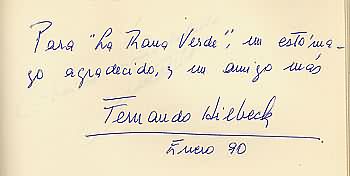 Para "La Rana Verde", un estóma-
go agradecido, y un amigo más
Fernando Hilbeck
Enero 90